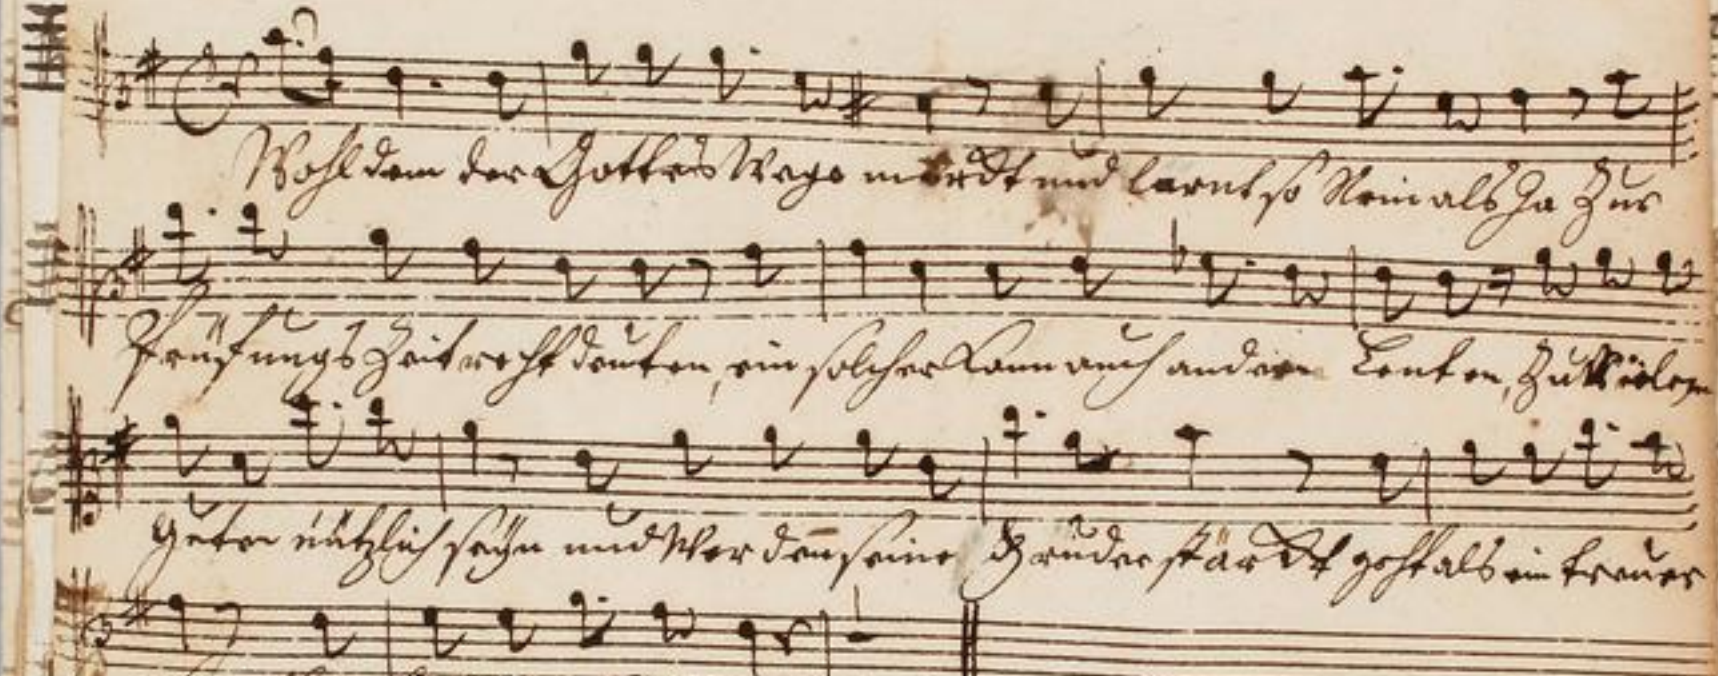 Wohl dem der Gottes Wege merckt und lernt so Nein als Ja Zur
Prüfungs Zeit recht deuten, ein solcher kann auch andern Leuten, Zu Vielem
Guten nützlich seyn und Wer denn seine Brüder stärckt geht als ein treuer